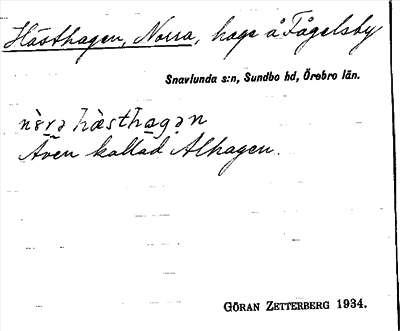 Hästhagen, Norra, hage å Fågelsby
Snavlunda s:n, Sundbo hd, Örebro län.
hästhagən
Även kallad Alhagen.
GÖRAN ZETTERBERG 1934.